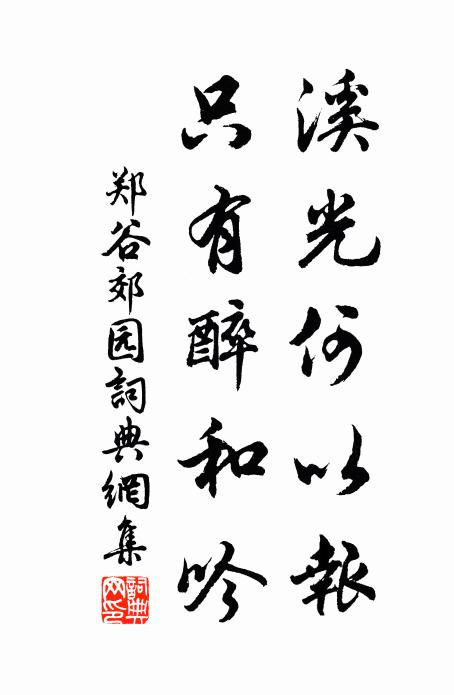 溪光何以報
只有醉和吟
郑谷郊园詞典網集
詞典网印